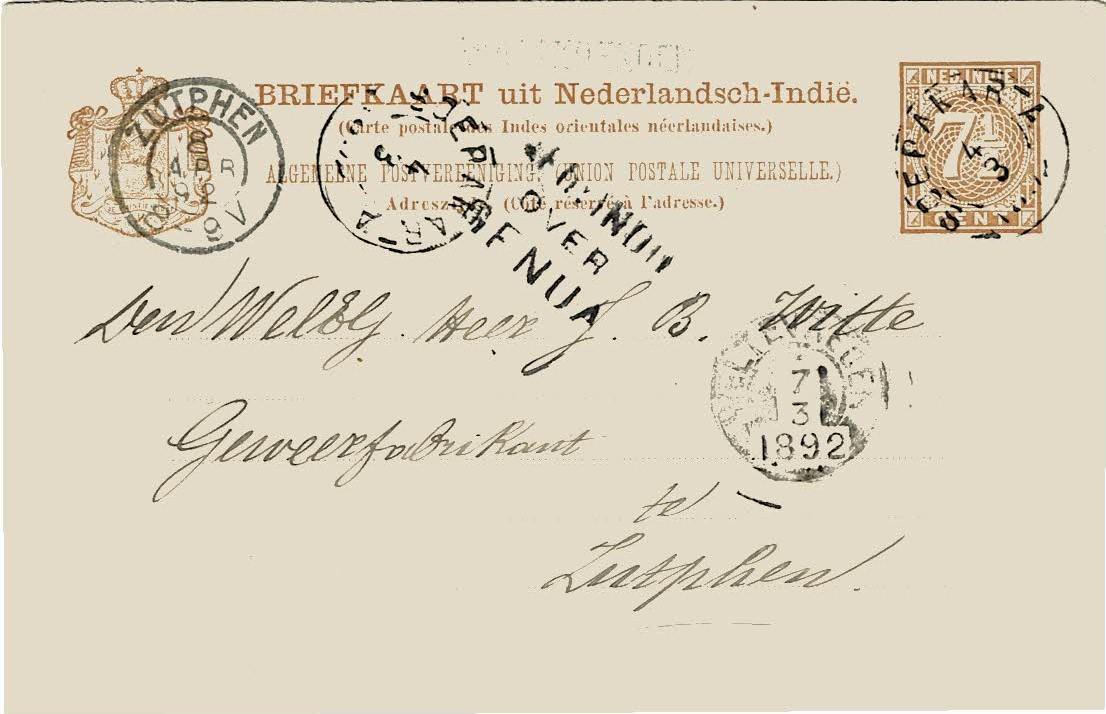 BRIEFKAART uit Nederlandsch-Indië.
(Carte postale des Indes orientales néerlandaises.)
ALGEMEENE POSTVEREENIGING (UNION POSTALE UNIVERSELLE.)
Adreszijde. (Côté réservé à l'adresse.)
NED. INDIE
7½
CENT
ZUTPHEN
8
APR
92
8-9V
TJEPAKAR-A
4
3
TJEPAKAR-A
4
3
OVER
GENUA
Den WelEdG. Heer J. B. Witte
Geweerfabrikant
te
Zutphen.
WELTEVREDEN
7
3
1892